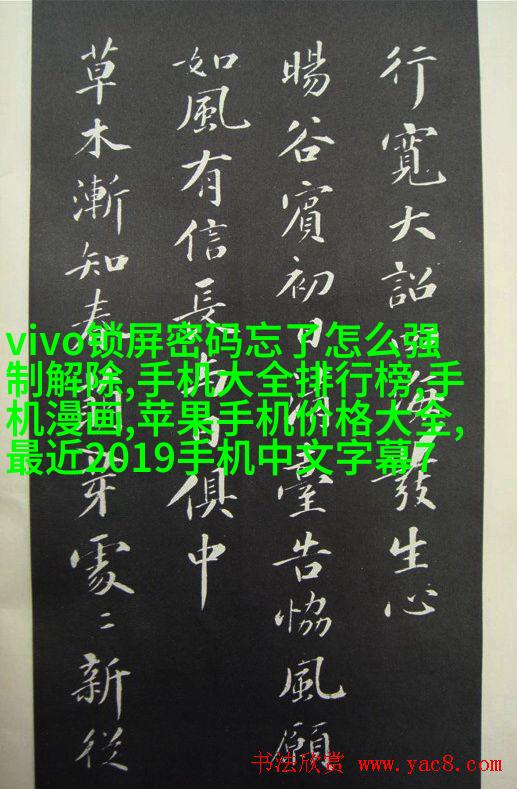 行寬大詔四海發生心
暘谷賓初日清臺告協風願
如風有信長與日俱中
草木漸知春萌芽處〻新從
vivo锁屏密码忘了怎么强
制解除,手机大全排行榜,手
机漫画,苹果手机价格大全,
最近2019手机中文字幕7
书法欣赏 www.yac8.com